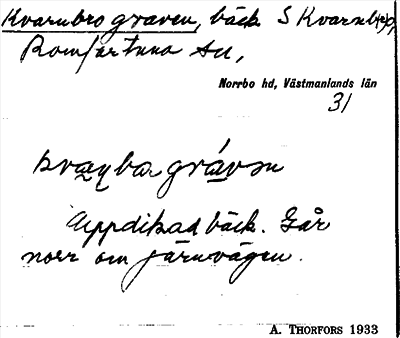 Kvarnbrograven, bäck S Kvarnbro,
Romfartuna sn,
Norrbo hd, Västmanlands län
31
Uppdikad bäck. Går
norr om järnvägen.
A. THORFORS 1933